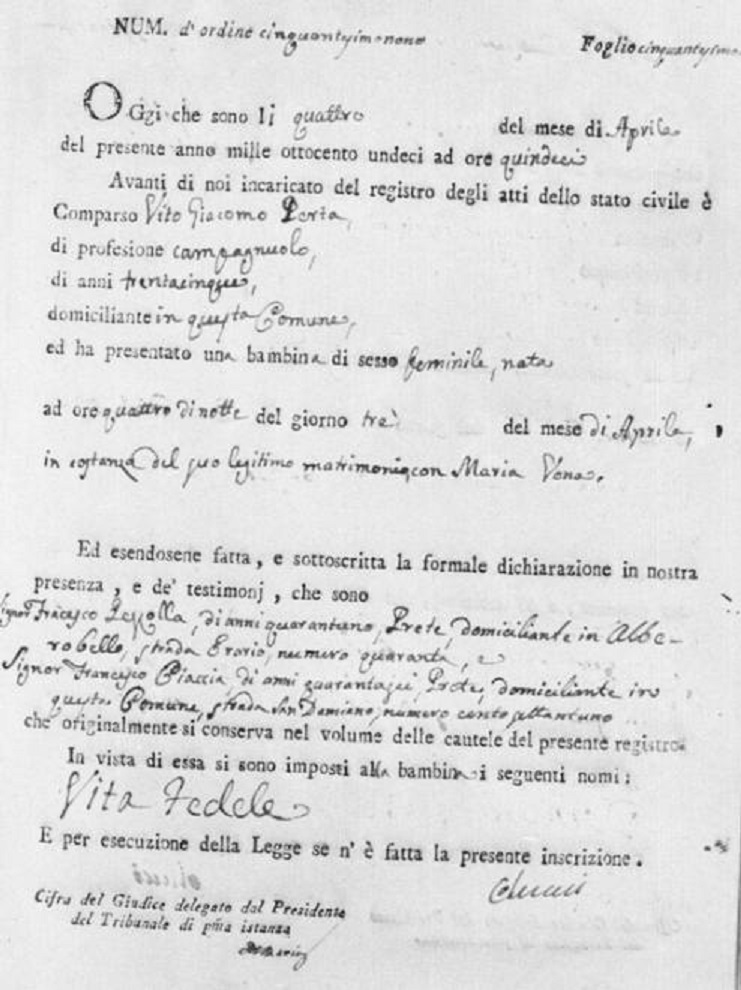 NUM. d'ordine cinquantesimonono
Foglio
OGgi che sono li quattro del mese di Aprile
del presente anno mille ottocento undeci ad ore quindeci
Avanti di noi incaricato del registro degli atti dello stato civile è
Comparso Vito Giacomo Perta,
di profesione campagnuolo,
di anni trentacinque,
domiciliante in questa Comune,
ed ha presentato una bambina di sesso feminile, nata
ad ore quattro di notte del giorno trè del mese di Aprile,
in costanza del suo legitimo matrimonio con Maria Vena.
Ed esendosene fatta, e sottoscritta la formale dichiarazione in nostra
presenza, e de' testimonj, che sono
Signor Francesco di anni quarantuno, Prete, domiciliante in Albe-
robello, strada Erario, numero quaranta, e
Signor Francesco Piaccia di anni quarantasei, Prete, domiciliante in
questa Comune, strada San Damiano, numero cento settantuno
che originalmente si conserva nel volume delle cautele del presente registro.
In vista di essa si sono imposti alla bambina i seguenti nomi:
Vita Fedele
E per esecuzione della Legge se n' è fatta la presente inscrizione.
Cifra del Giudice delegato dal Presidente
del Tribunale di pm̃a istanza